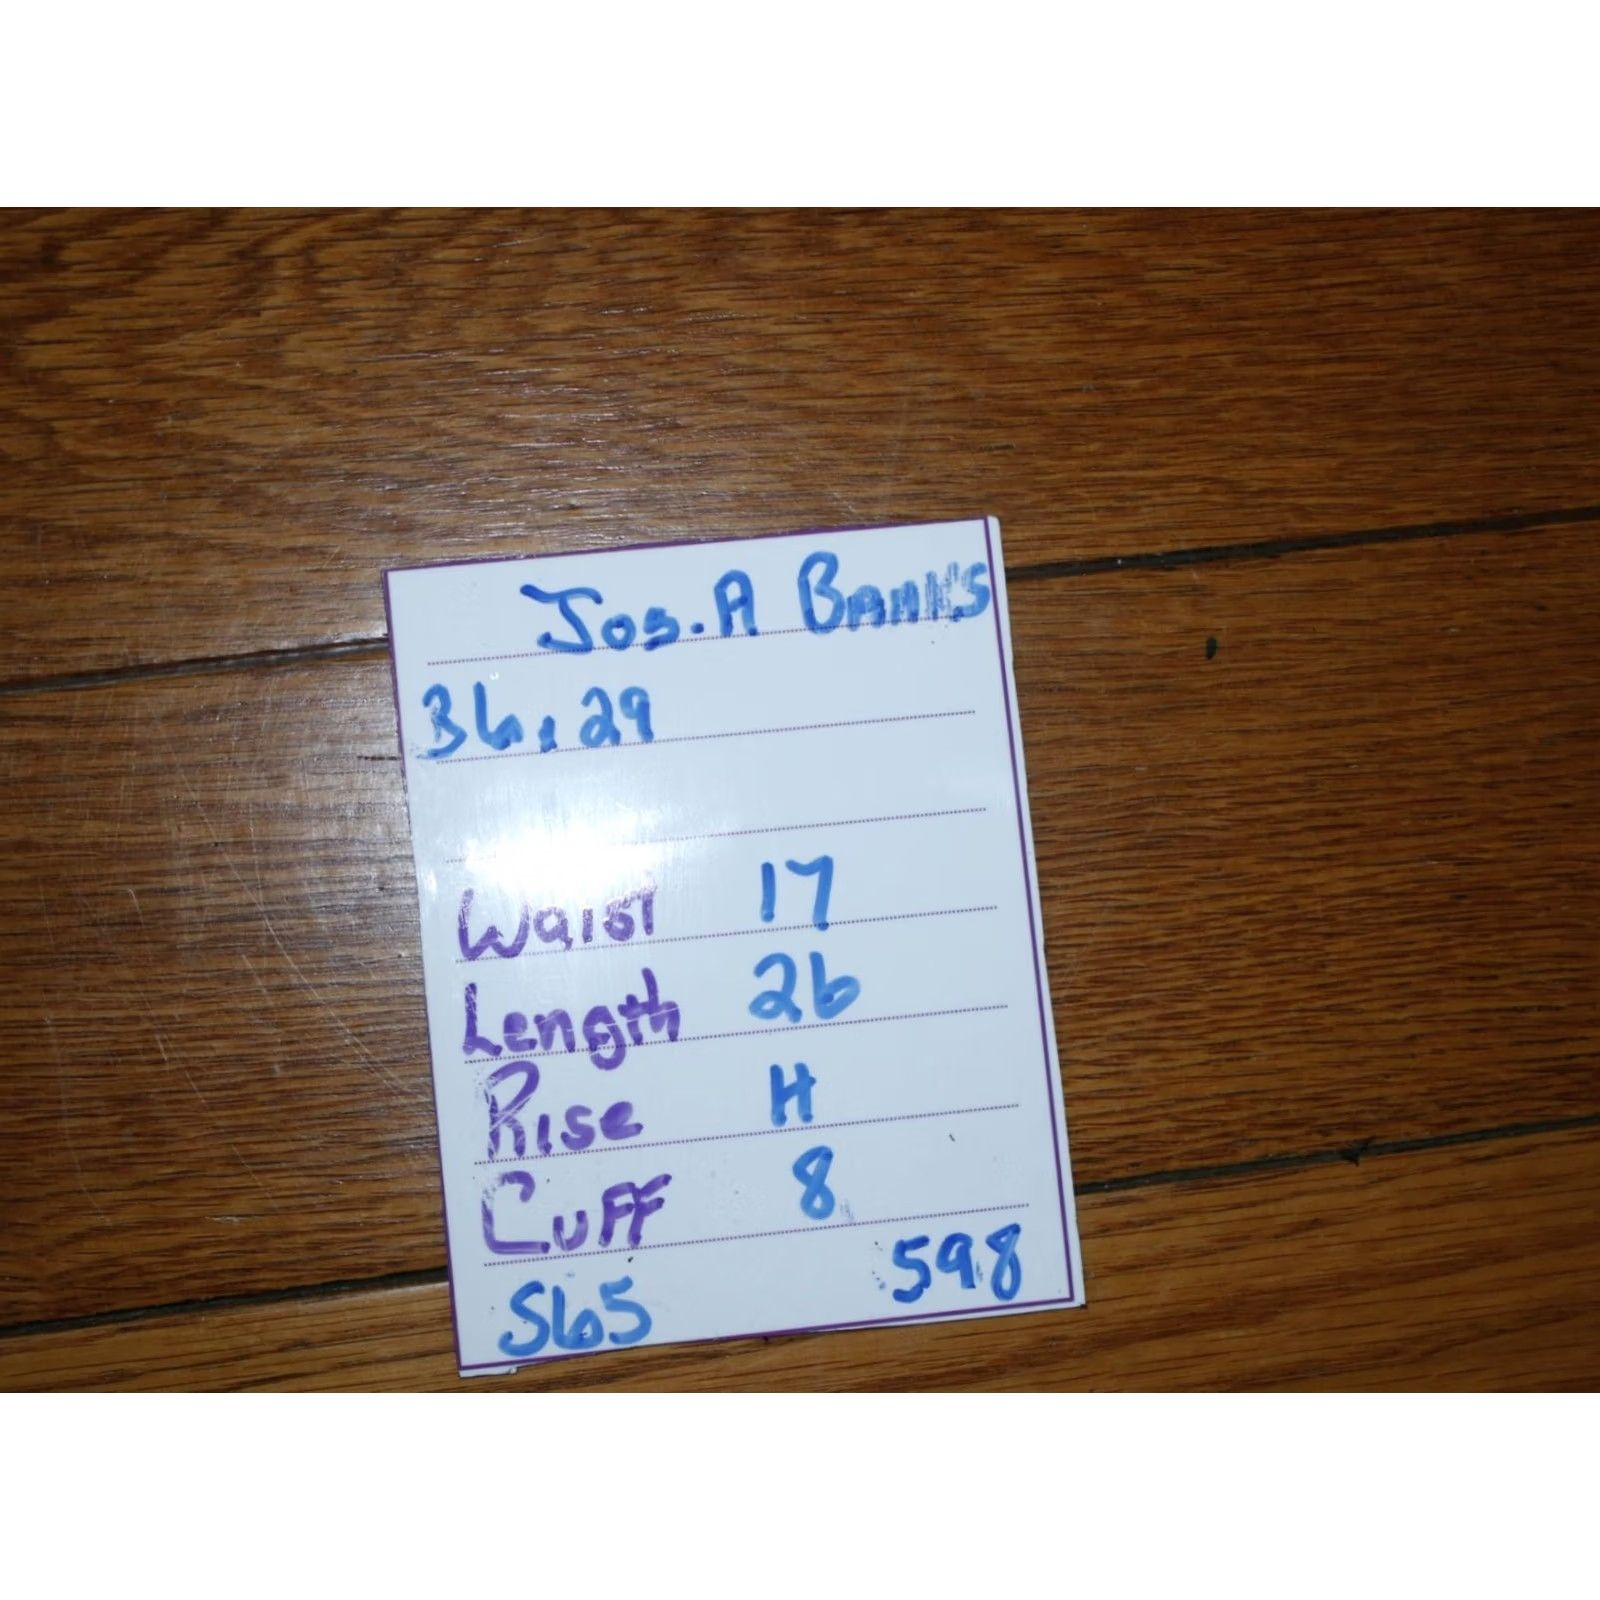 Jos.A BANK'S
36x29
Waist 17
Length 26
Rise H
Cuff 8
S65 598